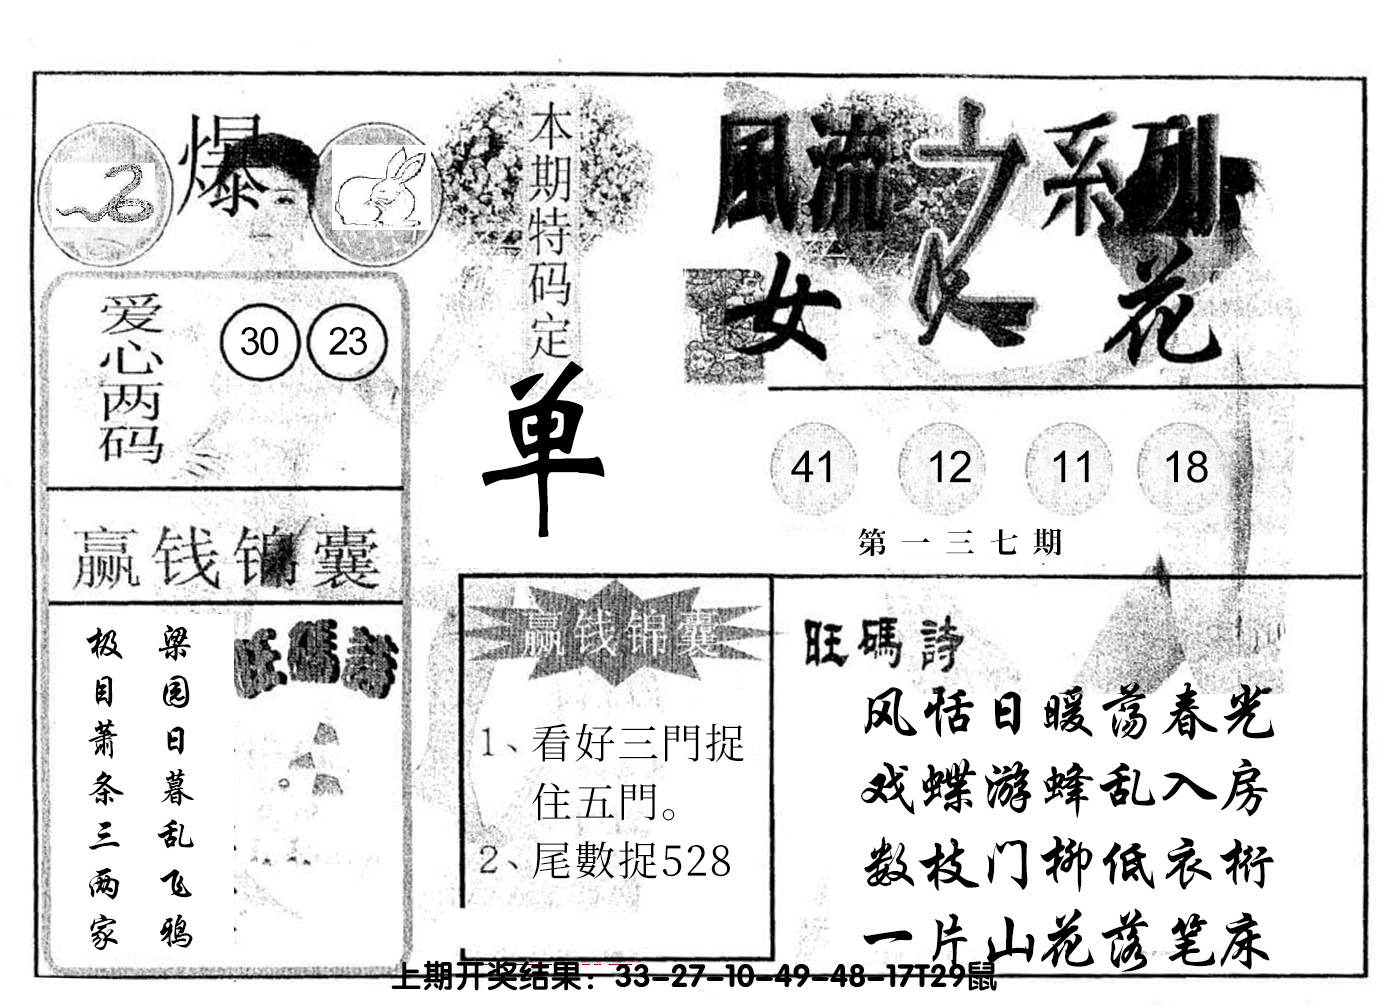 爆
本期特码定
单
風流之系列
女人花
爱心两码
30 23
赢钱锦囊
梁园日暮乱飞鸦
极目萧条三两家
旺碼詩
41 12 11 18
第一三七期
赢钱锦囊
1、看好三門捉
住五門。
2、尾數捉528
旺碼詩
风恬日暖荡春光
戏蝶游蜂乱入房
数枝门柳低衣桁
一片山花落笔床
上期开奖结果：33-27-10-49-48-17T29鼠